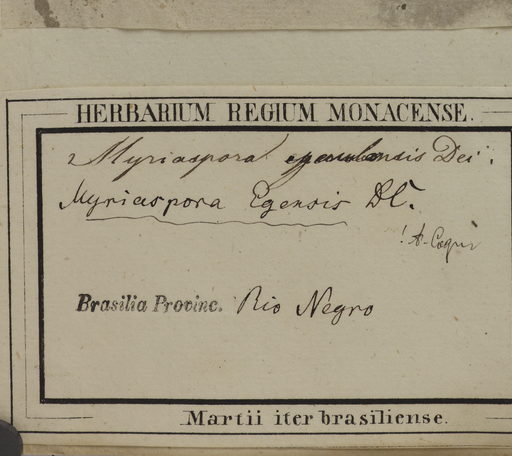 HERBARIUM REGIUM MONACENSE.
Myriaspora
Myriaspora Egensis DC.
! A. Cogn
Brasilia Provinc. Rio Negro
Martii iter brasiliense.